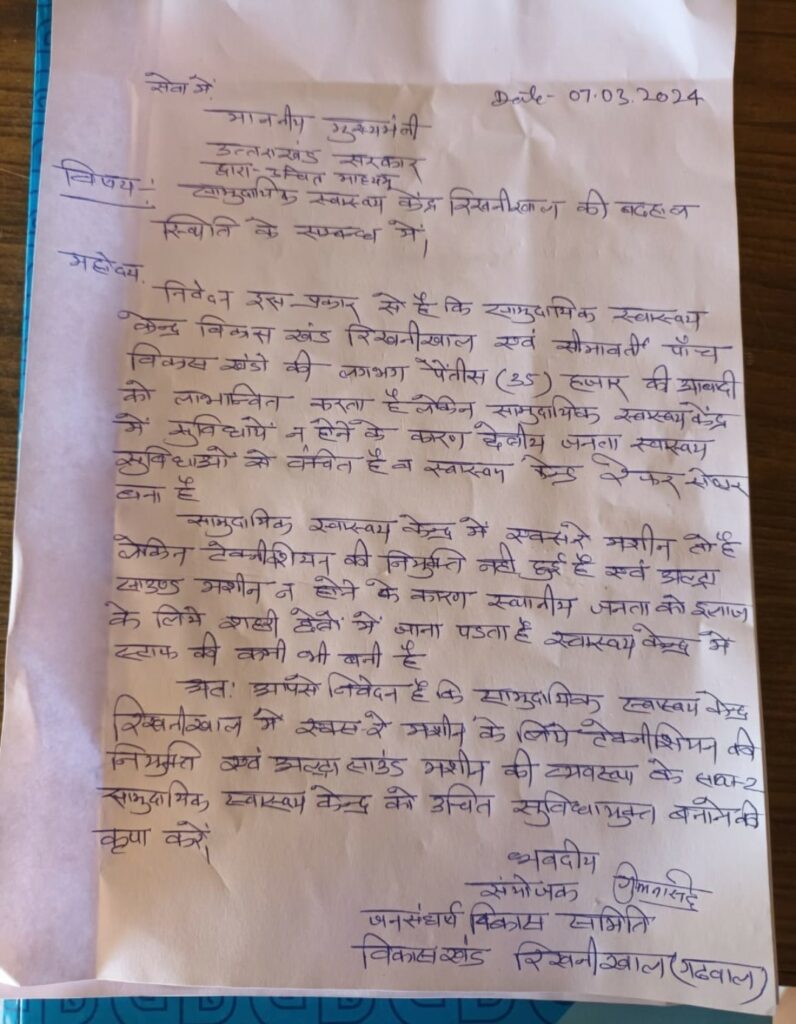 सेवा में,
Date- 07.03.2024
माननीय मुख्यमंत्री
उत्तराखंड सरकार
द्वारा- उचित माध्यम
विषय:- सामुदायिक स्वास्थ्य केंद्र रिखनीखाल की बदहाल
स्थिति के सम्बन्ध में।
महोदय,
निवेदन इस प्रकार से है कि सामुदायिक स्वास्थ्य
केन्द्र विकास खंड रिखनीखाल एवं सीमावर्ती पाँच
विकास खंडो की लगभग पैंतीस (35) हजार की आबादी
को लाभान्वित करता है लेकिन सामुदायिक स्वास्थ्य केंद्र
में सुविधायें न होने के कारण क्षेत्रीय जनता स्वास्थ्य
सुविधाओं से वंचित है व स्वास्थ्य केन्द्र रेफर सेन्टर
बना है
सामुदायिक स्वास्थ्य केन्द्र में एक्सरे मशीन तो है
लेकिन टेक्नीशियन की नियुक्ति नही हुई है एवं अल्ट्रा
साउण्ड मशीन न होने के कारण स्थानीय जनता को इलाज
के लिये शहरी क्षेत्रों में जाना पडता है स्वास्थ्य केन्द्र में
स्टाफ की कमी भी बनी है
अतः आपसे निवेदन है कि सामुदायिक स्वास्थ्य केन्द्र
रिखनीखाल में एक्स-रे मशीन के लिये टेक्नीशियन की
नियुक्ति एवं अल्ट्रा साउंड मशीन की व्यवस्था के साथ-2
सामुदायिक स्वास्थ्य केन्द्र को उचित सुविधायुक्त बनाने की
कृपा करें।
भवदीय
संयोजक
जनसंघर्ष विकास समिति
विकास खंड रिखनीखाल (गढवाल)